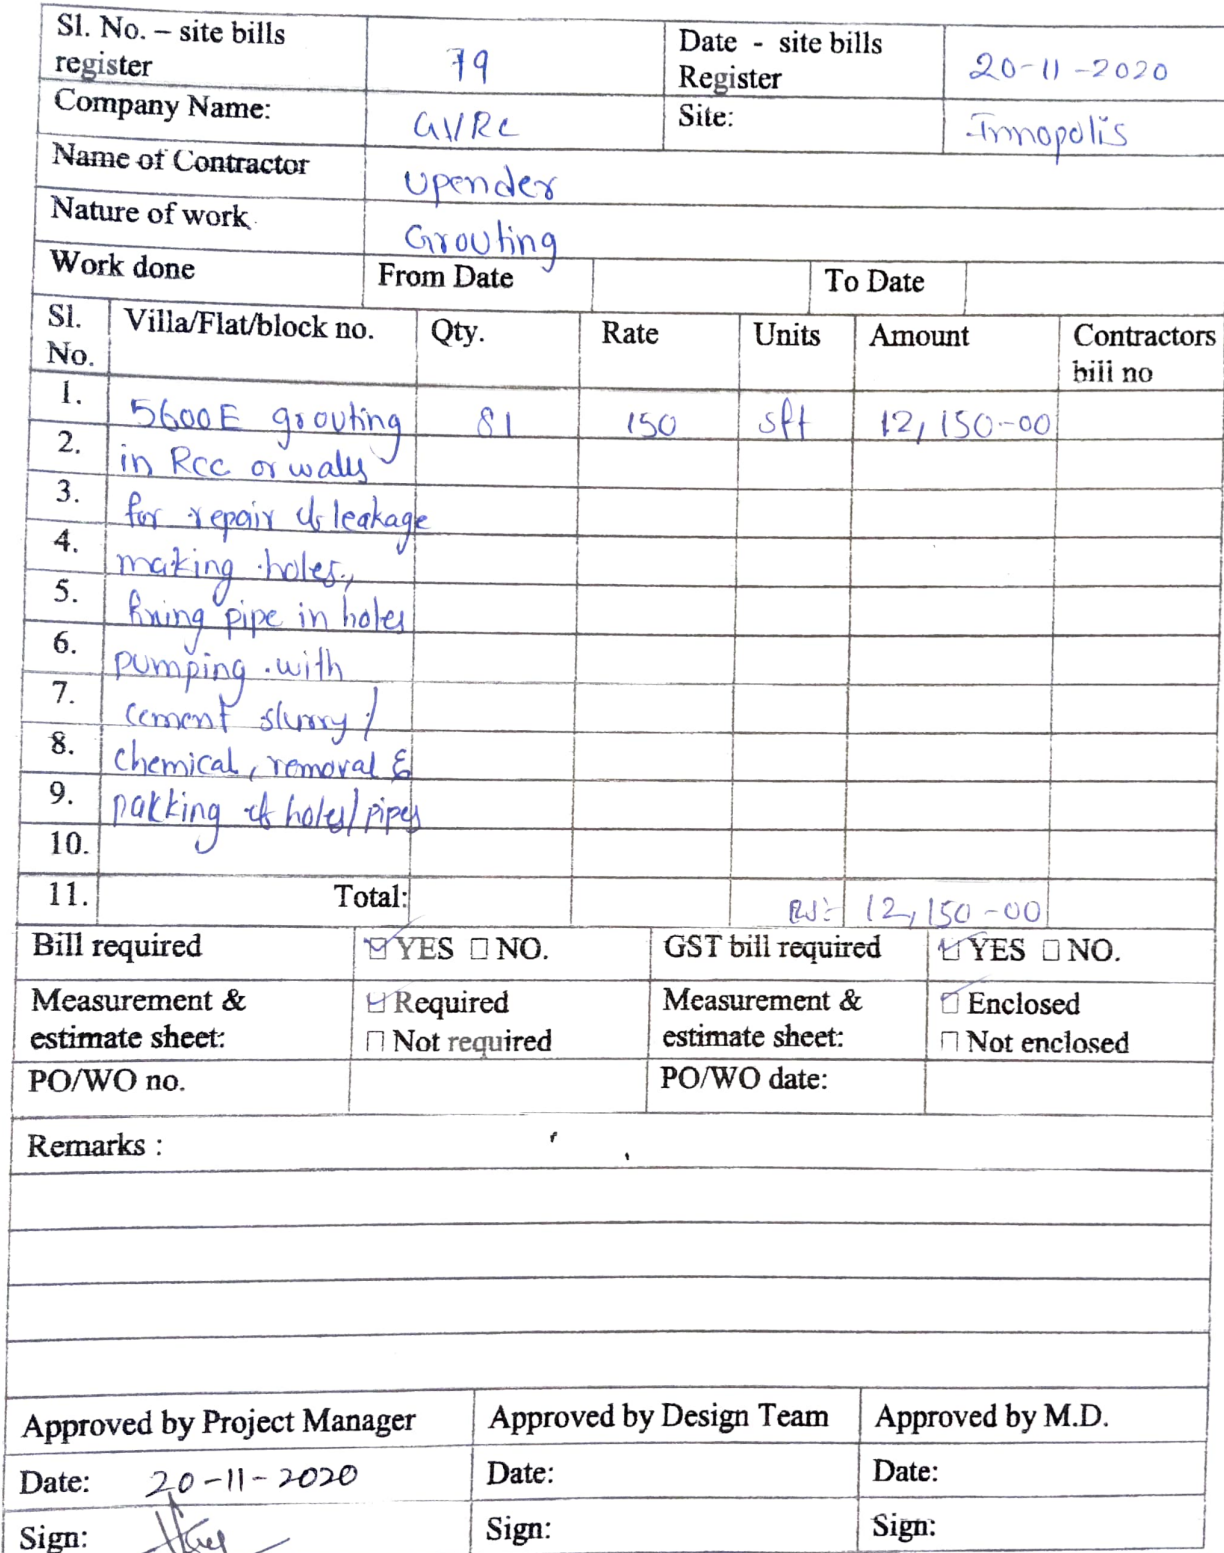 Sl. No. – site bills register 79 Date - site bills Register 20-11-2020
Company Name: GVRC Site: Innopolis
Name of Contractor Upender
Nature of work Grouting
Work done From Date To Date
Sl. No. Villa/Flat/block no. Qty. Rate Units Amount Contractors bill no
1. 5600E grouting 81 150 sft 12,150-00
2. in Rcc or walls
3. for repair of leakage
4. making holes,
5. fixing pipe in holes
6. pumping with
7. cement slurry /
8. chemical, removal &
9. packing of holes/pipes
10.
11. Total: Rs:- 12,150-00
Bill required ☑ YES □ NO. GST bill required ☑ YES □ NO.
Measurement & estimate sheet: ☑ Required Measurement & estimate sheet: ☑ Enclosed
□ Not required □ Not enclosed
PO/WO no. PO/WO date:
Remarks :
Approved by Project Manager Approved by Design Team Approved by M.D.
Date: 20-11-2020 Date: Date:
Sign: Sign: Sign: